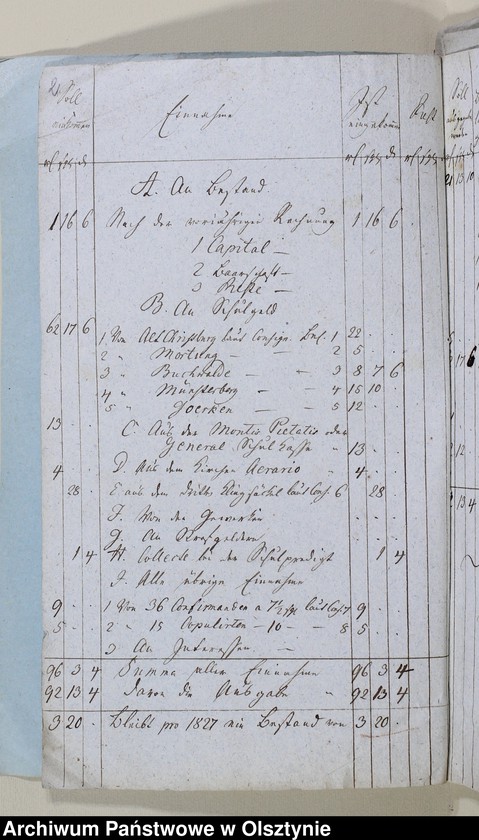 Soll einkommen Einnahme Ist eingekommen Rest
A. An Bestand
1 16 6 Nach der vorjährigen Rechnung 1 16 6
1 Capital —
2 Baarschaft —
3 Reste —
B. An Schulgeld
62 17 6
1 Von Alt Christburg laut Consign. Bel. 1 22 . .
2 " Mortung — — 2 5 . .
3 " Buchwalde — 3 8 7 6
4 " Münsterberg — 4 15 10 .
5 " Goerken — 5 12 . .
13 . . C. Aus der Montis Pietatis oder
General Schul Kasse " 13 . .
4 . . D. Aus dem Kirchen Aerario " 4 . .
28 . E. aus dem dritten Klingsäckel laut Cons. 6 28 .
F. Von den Gewerken
G. An Strafgeldern
1 4 H. Collecte bei der Schulpredigt 1 4
J. Alle übrige Einnahme
9 . . 1 Von 36 Confirmanden a 7½ sgr laut Cons. 7 9 . .
5 . . 2 " 15 Copulirten — 10 — 8 5 . .
3 An Interessen —
96 3 4 Summa aller Einnahme 96 3 4
92 13 4 Davon die Ausgabe " 92 13 4
3 20 . Bleibt pro 1827 ein Bestand von 3 20 .
Archiwum Państwowe w Olsztynie